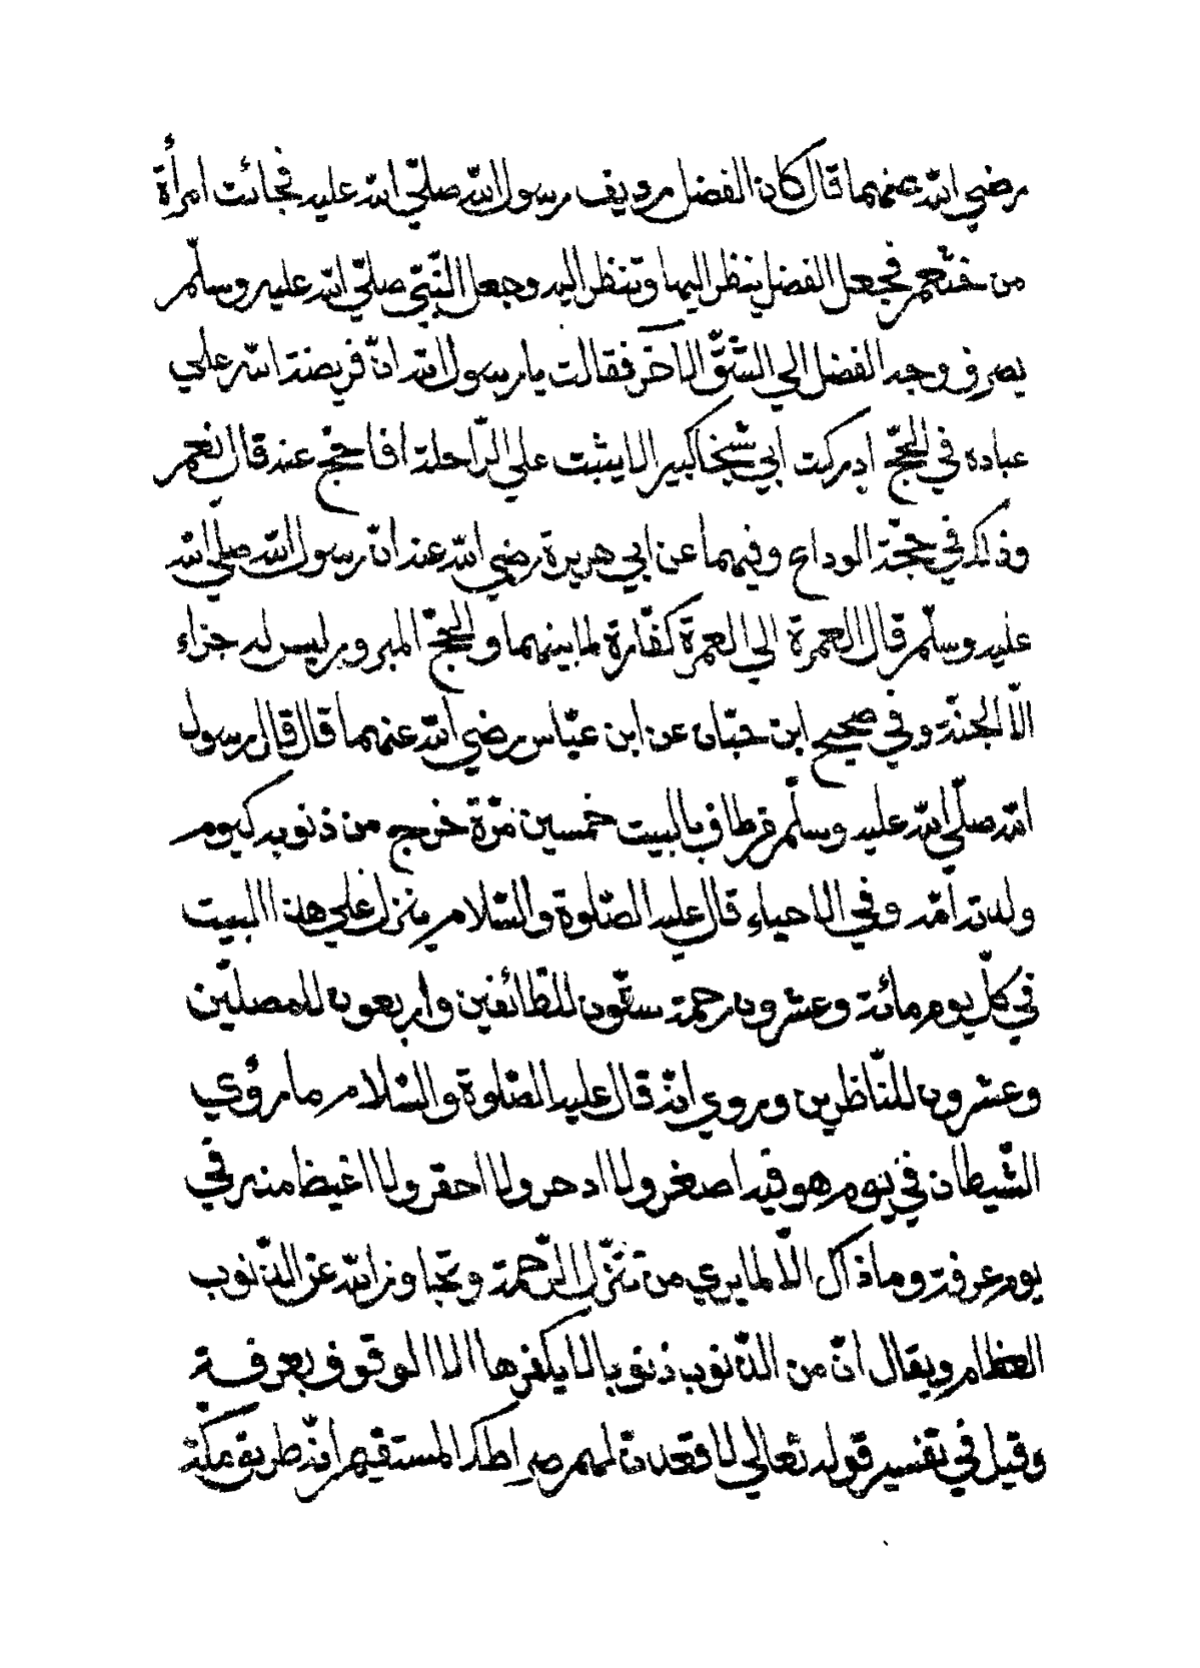 رضي الله عنهما قال كان الفضل رديف رسول الله صلّي الله عليه فجائت امرأة
من خثعم فجعل الفضل ينظر اليها وتنظر اليه وجعل النّبيّ صلّي الله عليه وسلّم
يصرف وجه الفضل الي الشّقّ الآخر فقالت يا رسول الله انّ فريضة الله علي
عباده في الحجّ ادركت ابي شيخا كبيرا لا يثبت علي الرّاحلة افاحجّ عنه قال نعم
وذلك في حجّة الوداع وفيهما عن ابي هريرة رضي الله عنه انّ رسول الله صلّي الله
عليه وسلّم قال العمرة الي العمرة كفّارة لما بينهما والحجّ المبرور ليس له جزاء
الّا الجنّة وفي صحيح ابن حبّان عن ابن عبّاس رضي الله عنهما قال قال رسول
الله صلّي الله عليه وسلّم من طاف بالبيت خمسين مرّة خرج من ذنوبه كيوم
ولدته امّه وفي الاحياء قال عليه الصّلوة والسّلام ينزل علي هذا البيت
في كلّ يوم مائة وعشرون رحمة ستّون للطّائفين واربعون للمصلّين
وعشرون للنّاظرين وروي انّه قال عليه الصّلوة والسّلام ما رؤي
الشّيطان في يوم هو فيه اصغر ولا ادحر ولا احقر ولا اغيظ منه في
يوم عرفة وما ذاك الّا لما يري من تنزّل الرّحمة وتجاوز الله عن الذّنوب
العظام ويقال انّ من الذّنوب ذنوبا لا يكفرها الا الوقوف بعرفة
وقيل في تفسير قوله تعالي لاقعدنّ لهم صراطك المستقيم انّه طريق مكّة